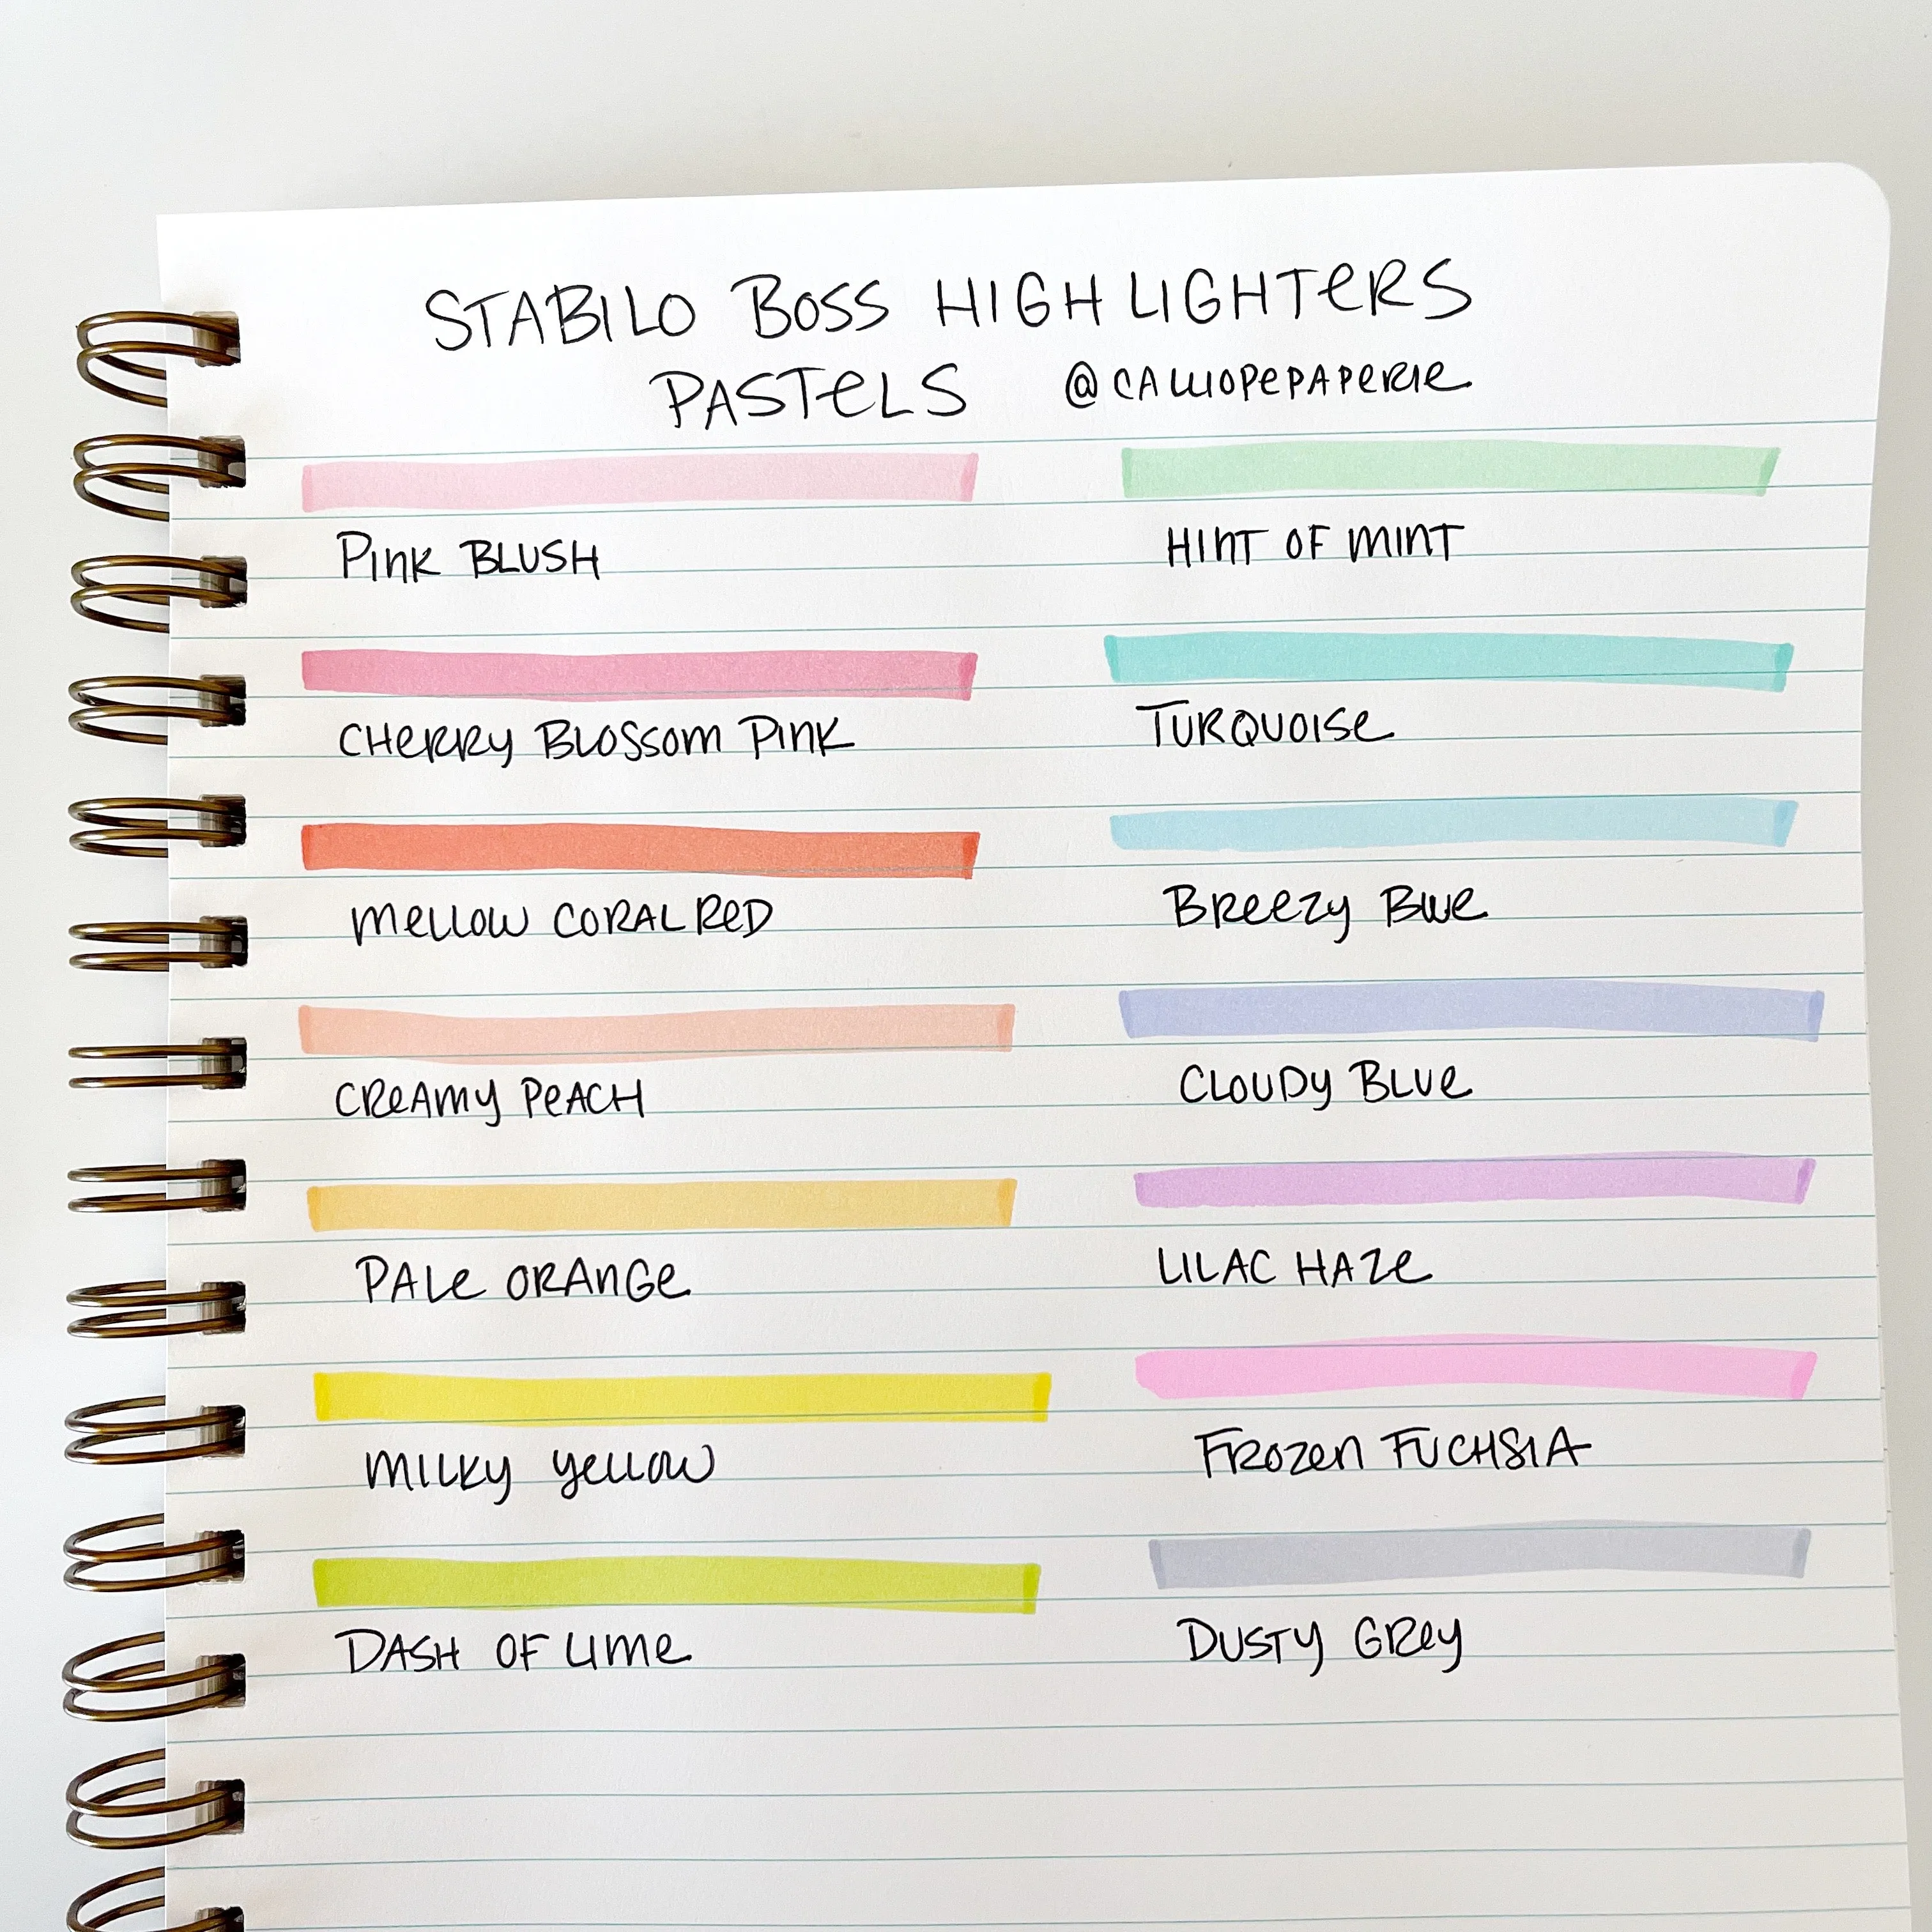 STABILO BOSS HIGHLIGHTERS
PASTELS @CALLIOPEPAPERIE
PINK BLUSH
CHERRY BLOSSOM PINK
MELLOW CORAL RED
CREAMY PEACH
PALE ORANGE
MILKY YELLOW
DASH OF LIME
HINT OF MINT
TURQUOISE
BREEZY BLUE
CLOUDY BLUE
LILAC HAZE
FROZEN FUCHSIA
DUSTY GREY